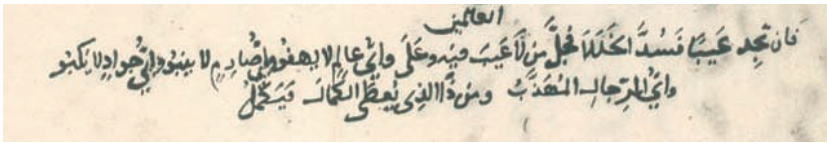 العالمين
فان تجِد عَيبًا فَسُدَّ الخَلَلَا فجَلَّ من لَا عَيبَ فيه وعَلَى وايُّ عالِمٍ لا يهفو وايُّ صارِمٍ لا ينبو وايُّ جوادٍ لا يكبو
وايُّ الرِّجالِ المُهَذَّبُ ومن ذَا الذِى يُعطَى الكمالَ فَيَكْمُلُ